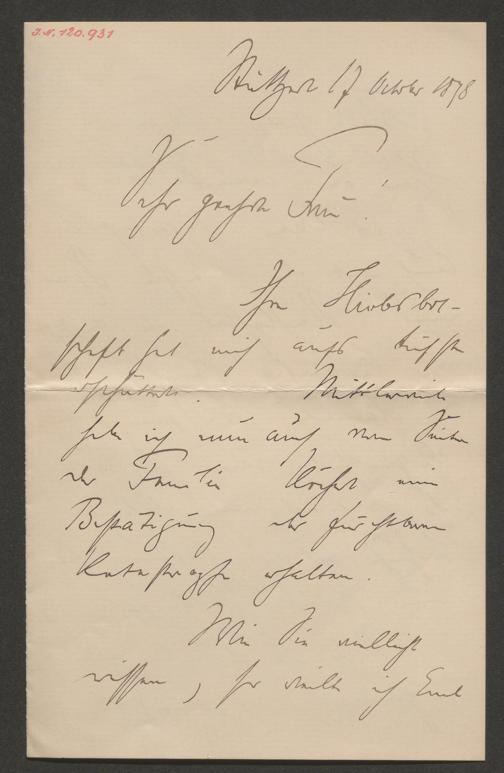 J.N. 120.931
Stuttgart 17 October 1878
Sehr geehrte Frau!
Ihre Hiobsbot-
schaft hat mich aufs tiefste
erschüttert. Mittlerweile
habe ich nun auch von Seiten
der Familie eine
Bestätigung der furchtbaren
Katastrophe erhalten.
Wie Sie vielleicht
wissen, so ich Emil